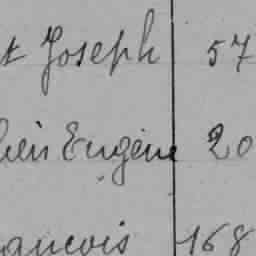 t Joseph 57
Eugène 20
ançois 168